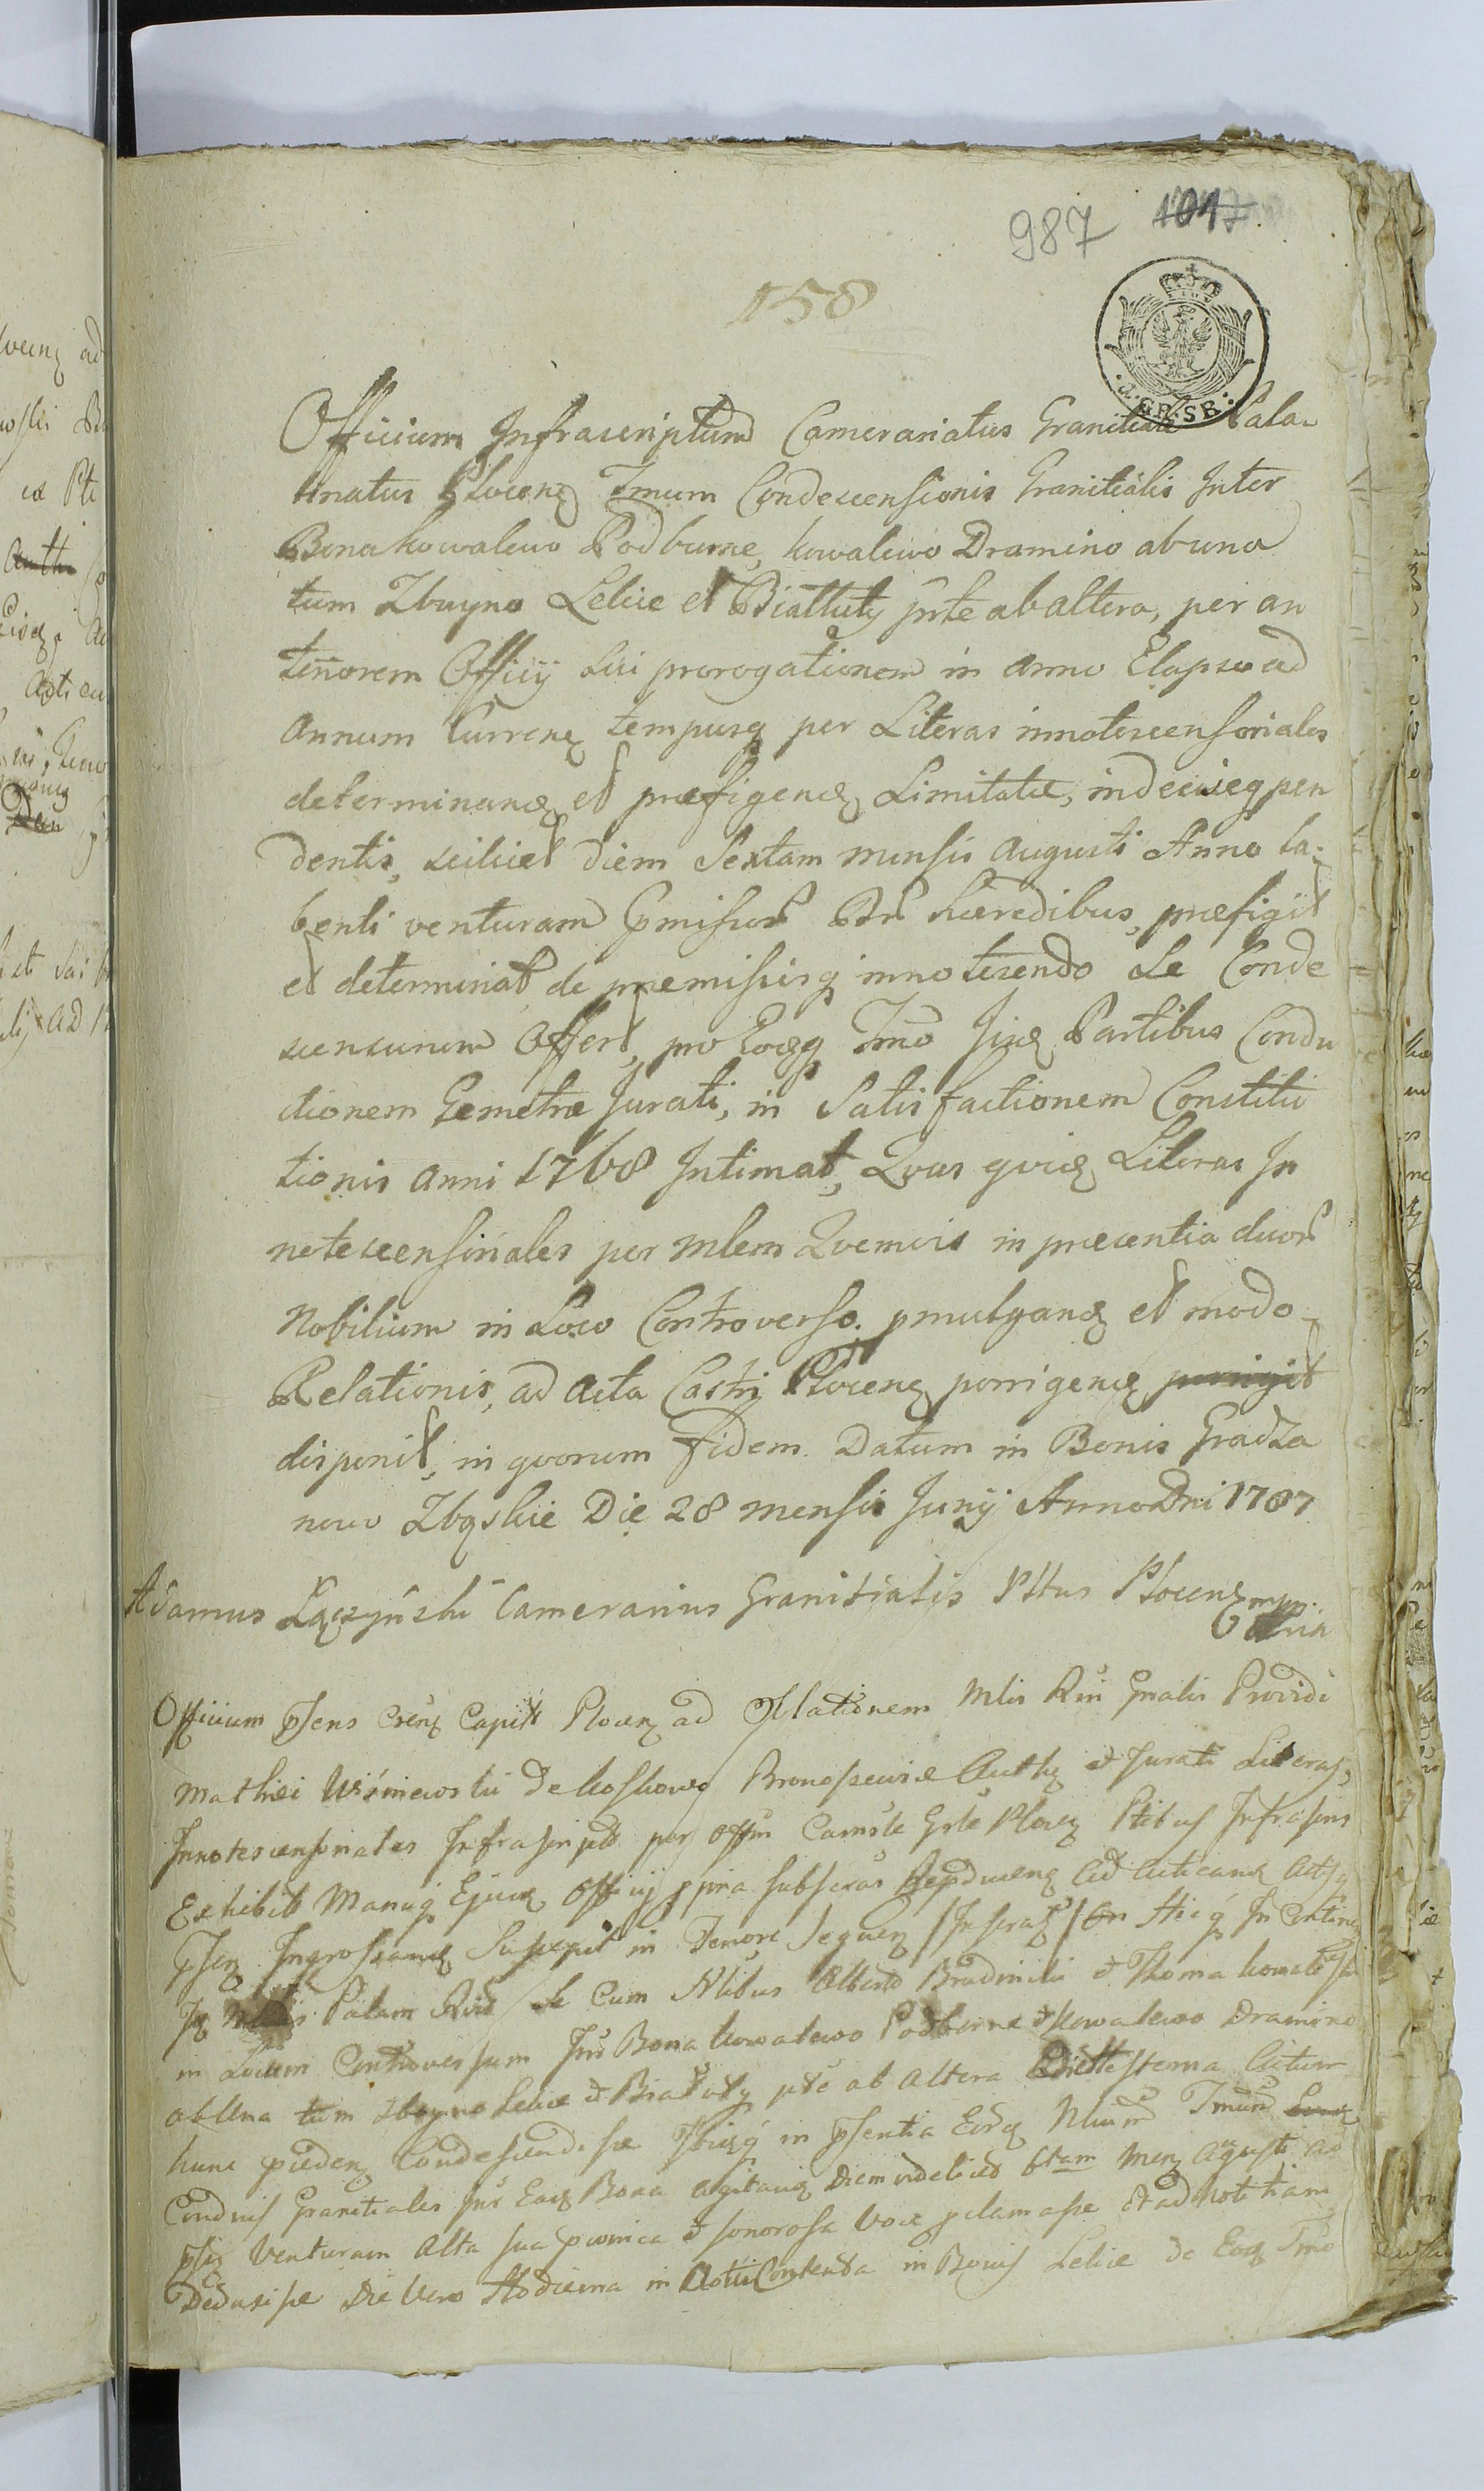 987 1017
158
4. GR. SR:
Officium Infrascriptum Camerariatus Granitiale Pala-
tinatus Plocenȝ Tmum Condescensionis Granitialis Inter
Bona Kowalewo Podburne, Kowalewo Dramino ab una
tum Zbuyno Lelice et Białłuty prte ab altera, per an
teriorem Officij sui prorogationem in anno Elapso ad
annum Currenȝ tempusq per Literas innotescensoriales
determinanȝ et præfigenȝ Limitatæ, indeciseq pen
dentis, scilicet diem Sextam mensis augusti Anno la-
benti venturam pmissor Br hæredibus, præfigit
et determinat de præmissisq innotescendo se Conde
scensurum Offert, pro eoȝq Tmo Jisȝ Partibus Condu
ctionem Gemetræ Jurati, in Satisfactionem Constitu
tionis anni 1768 Intimat, Quas quiȝ Literas In
notescensiriales per mlem Quemvis in præsentia duor
Nobilium in Loco Controverso pmulganȝ et modo
Relationis, ad acta Castri Plocenȝ porrigenȝ porrigit
disponit, in quorum fidem. Datum in Bonis Gradza
nowo Zbęskie Die 28 mensis Junij Anno Dni 1787
Adamus Łączyński Camerarius Granitialis Pttus Plocenȝ mpp.
Officium psens Csenȝ Capitt Plocenȝ ad Oblationem Mlis Rni Gnalis Providi
Mathiei Wiśniewski de Koskowo Authȝ et Jurati Literas,
Innotescensoriales Infrascriptȝ per offm Camrle Plocȝ Ptibus Infrascris
Exhibit Manuq Ejusȝ Officij ppria subscras Ad Acticanȝ Actsq
psen Ingrossanȝ Suscepit in Tenore Sequenȝ / Inserat / On Hicq In Contine
Palam Rcit Se Cum Nlibus Alberto Bradwiski et Thoma Kowalewski
in Locum Controversum Inr Bona Kowalewo Podborne et Kowalewo Dramino
ab Una tum Zboyno Lelice et Białuty pte ab Altera Autum
hunc Condescendisse Ibiȝq in psentia Eorȝ Nlium Tmum
Condnis Granitialis Inr Eaȝ Bona agitanȝ Diem videlicet 6tam Menȝ Augusti
psȝ Venturam Alta sua et sonorosa Voce pclamasse Et ad Nottitiam
Deduxisse Die Vero Hodierna in Contenta in Bonis Lelice de Eoȝ Tmo